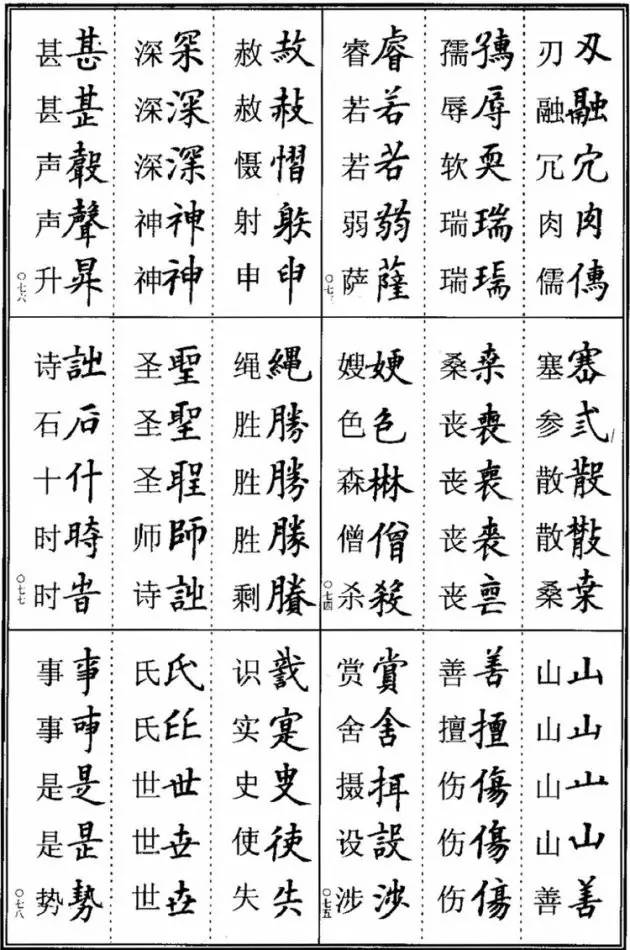 刃融宂肉
刃融冗肉儒
辱耎瑞瑞
孺辱软瑞瑞
睿若若弱薩
睿若若弱萨
〇七
塞弎散
塞参散散桑
桒喪
桑丧丧丧丧
色僧殺
嫂色森僧杀
〇七四
山山山山善
山山山山善
善擅傷傷傷
善擅伤伤伤
賞舍設涉
赏舍摄设涉
〇七五
赦慴射申
赦赦慑射申
深深神神
深深深神神
甚聲昇
甚甚声声升
〇七六
繩勝勝勝賸
绳胜胜胜剩
聖聖師詩
圣圣圣师诗
詩石什時旹
诗石十时时
〇七七
識寔史使失
识实史使失
氏世世世
氏氏世世世
事事是是勢
事事是是势
〇七八